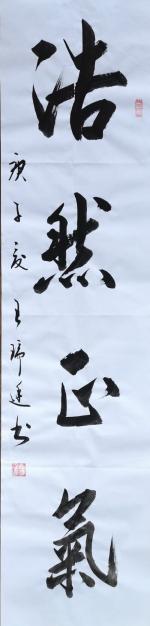 浩然正氣
庚子夏王瑞廷书